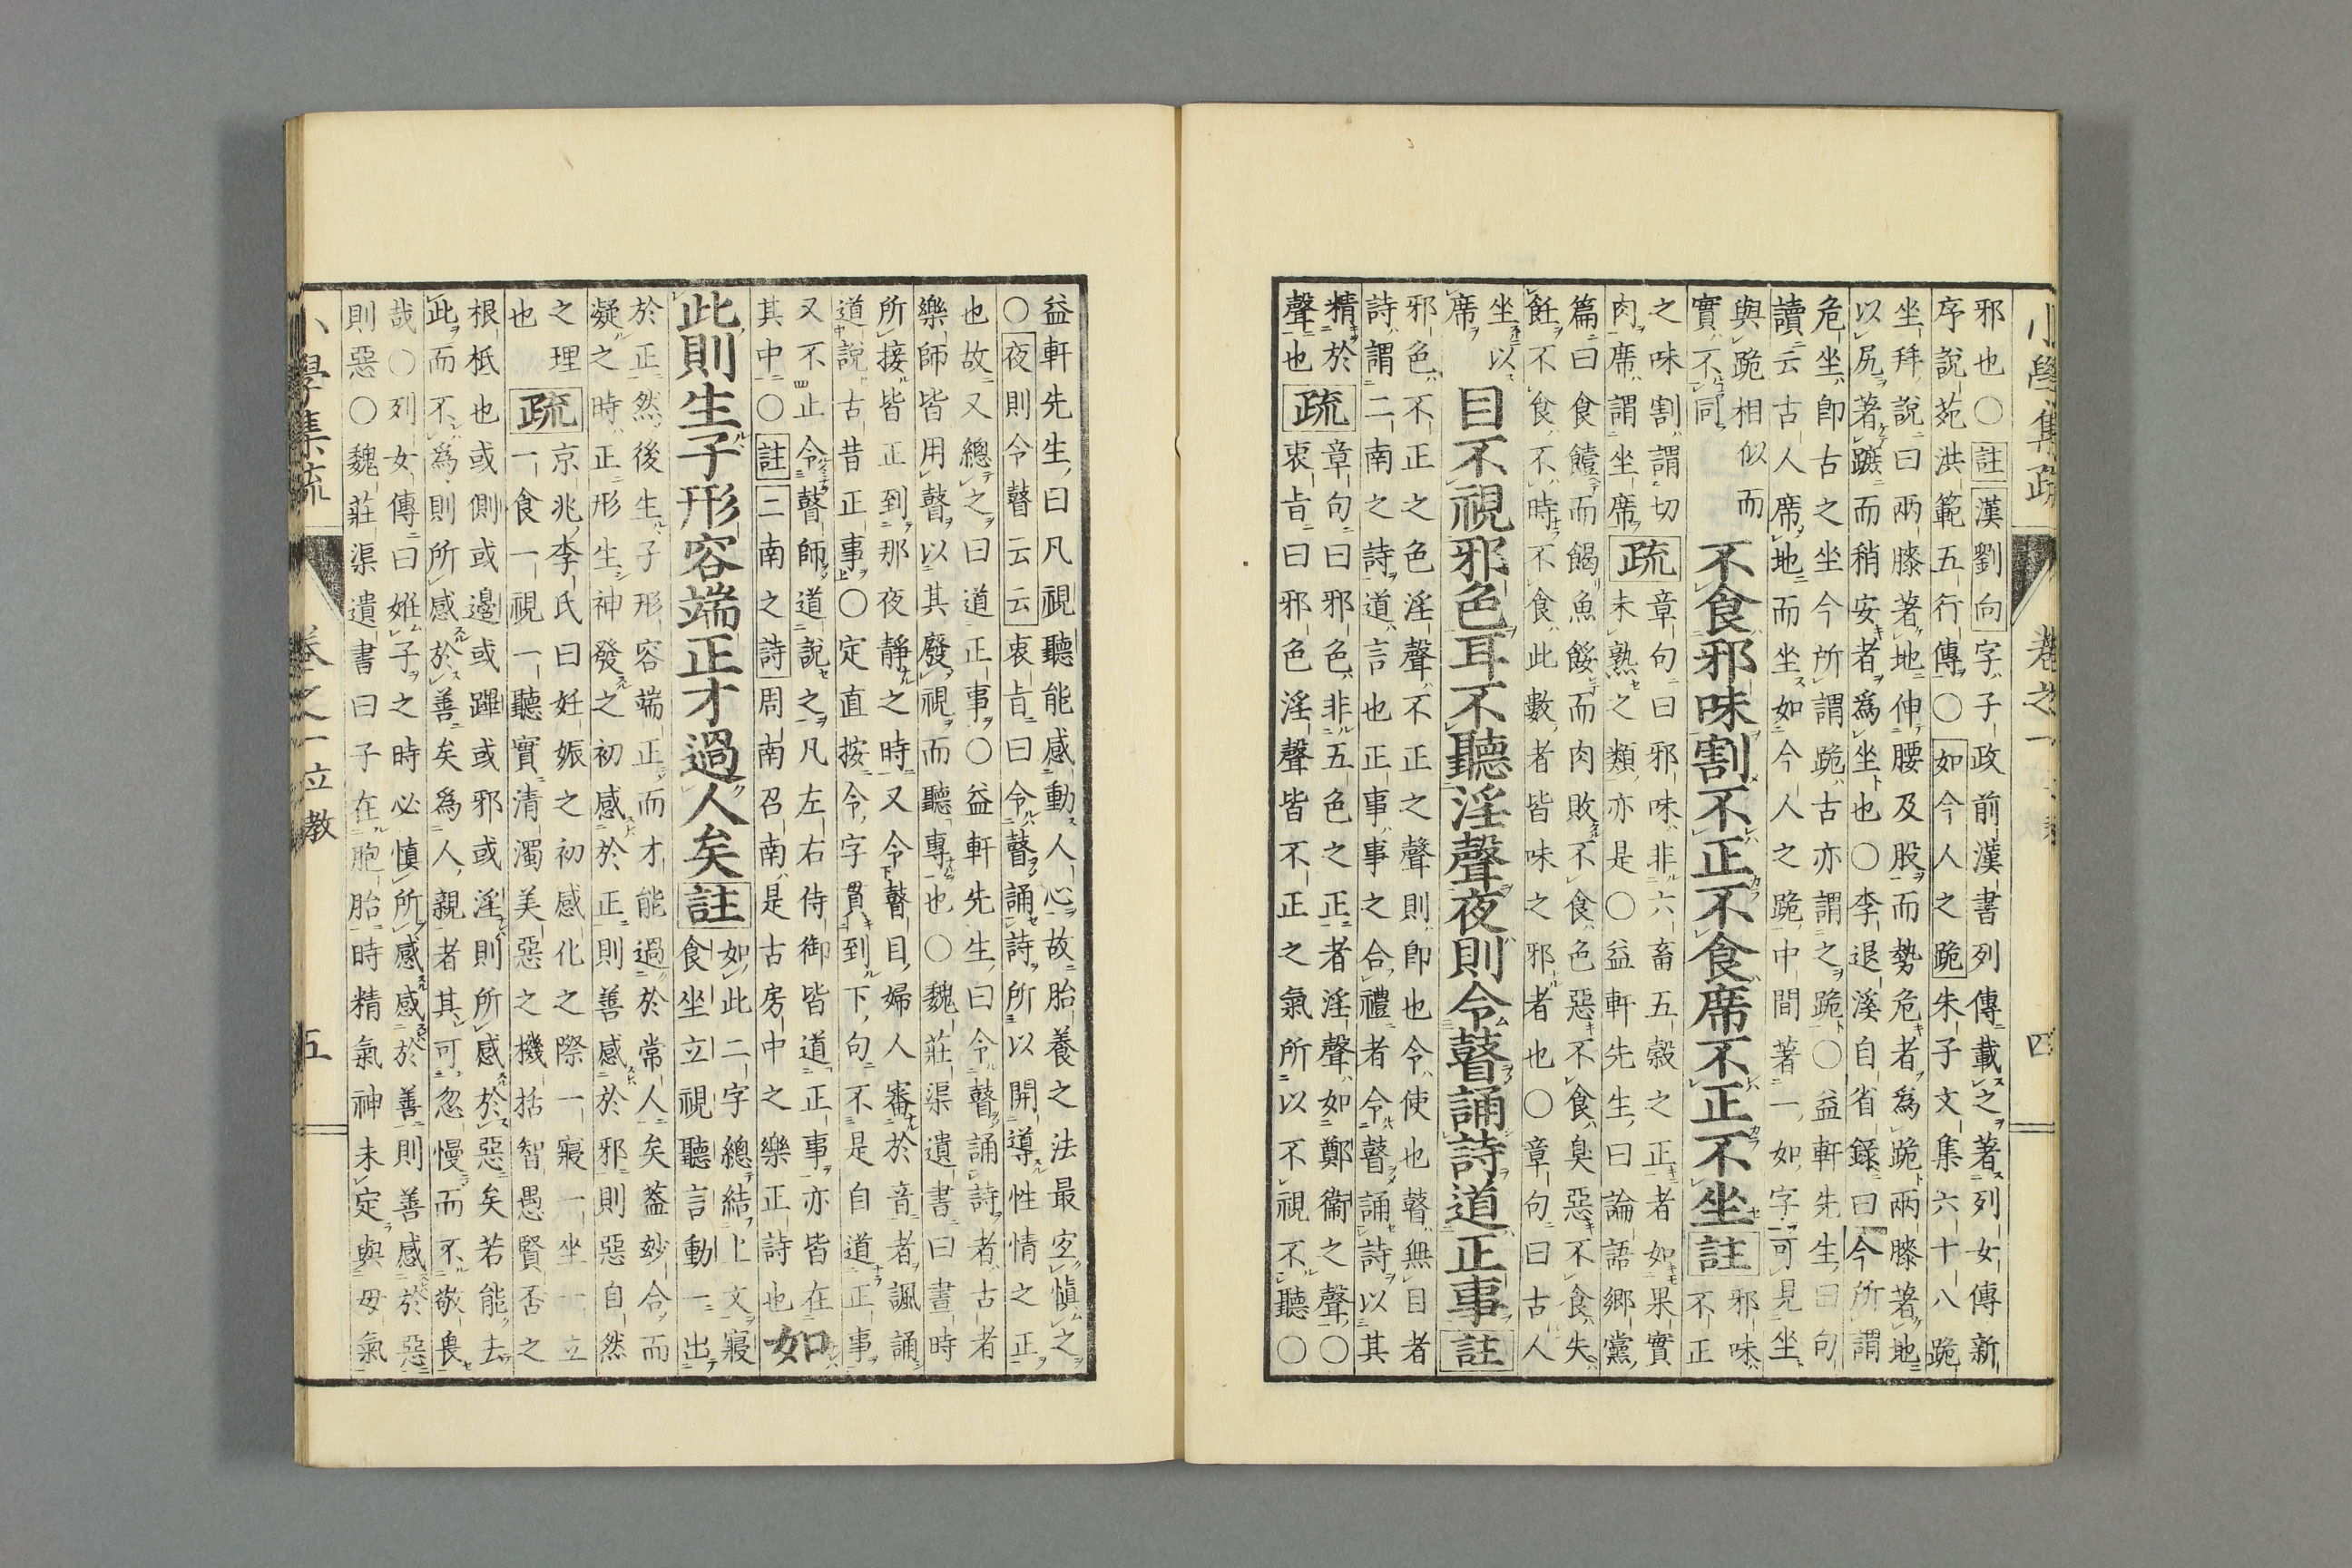 小學集疏 卷之一 四
邪也○註漢劉向字子政前漢書列傳載之著列女傳新
序說苑洪範五行傳○如今人之跪朱子文集六十八跪
坐拜說曰兩膝著地伸腰及股而勢危者爲跪兩膝著地
以尻著蹠而稍安者爲坐也○李退溪自省錄曰今所謂
危坐卽古之坐今所謂跪古亦謂之跪○益軒先生曰句
讀云古人席地而坐如今人之跪中間著一如字可見坐
與跪相似而
實不同
不食邪味割不正不食席不正不坐註
邪味
不正
之味割謂切
肉席謂坐席
疏
章句曰邪味非六畜五穀之正者如果實
未熟之類亦是○益軒先生曰論語鄉黨
篇曰食饐而餲魚餒而肉敗不食色惡不食臭惡不食失
飪不食不時不食此數者皆味之邪者也○章句曰古人
坐以
席
目不視邪色耳不聽淫聲夜則令瞽誦詩道正事註
邪色不正之色淫聲不正之聲則卽也令使也瞽無目者
詩謂二南之詩道言也正事事之合禮者令瞽誦詩以其
精於
聲也
疏
章句曰邪色非五色之正者淫聲如鄭衞之聲○
衷旨曰邪色淫聲皆不正之氣所以不視不聽○
益軒先生曰凡視聽能感動人心故胎養之法最宜愼之
○夜則令瞽云云衷旨曰令瞽誦詩所以開導性情之正
也故又總之曰道正事○益軒先生曰令瞽誦詩者古者
樂師皆用瞽以其廢視而聽專也○魏莊渠遺書曰晝時
所接皆正到那夜靜之時又令瞽目婦人審於音者諷誦
道說古昔正事○定直按令字貫到下句不是自道正事
又不止令瞽師道說之凡左右侍御皆道正事亦皆在
其中○註二南之詩周南召南是古房中之樂正詩也
如
此則生子形容端正才過人矣註
如此二字總結上文寢
食坐立視聽言動一出
於正然後生子形容端正而才能過於常人矣葢玅合而
凝之時正形生神發之初感於正則善感於邪則惡自然
之理
也
疏
京兆李氏曰妊娠之初感化之際一寢一坐一立
一食一視一聽實清濁美惡之機括智愚賢否之
根柢也或側或邊或蹕或邪或淫則所感於惡矣若能去
此而不爲則所感於善矣爲人親者其可忽慢而不敬畏
哉○列女傳曰姙子之時必慎所感感於善則善感於惡
則惡○魏莊渠遺書曰子在胞胎時精氣神未定與母氣
小學集疏 卷之一立教 五